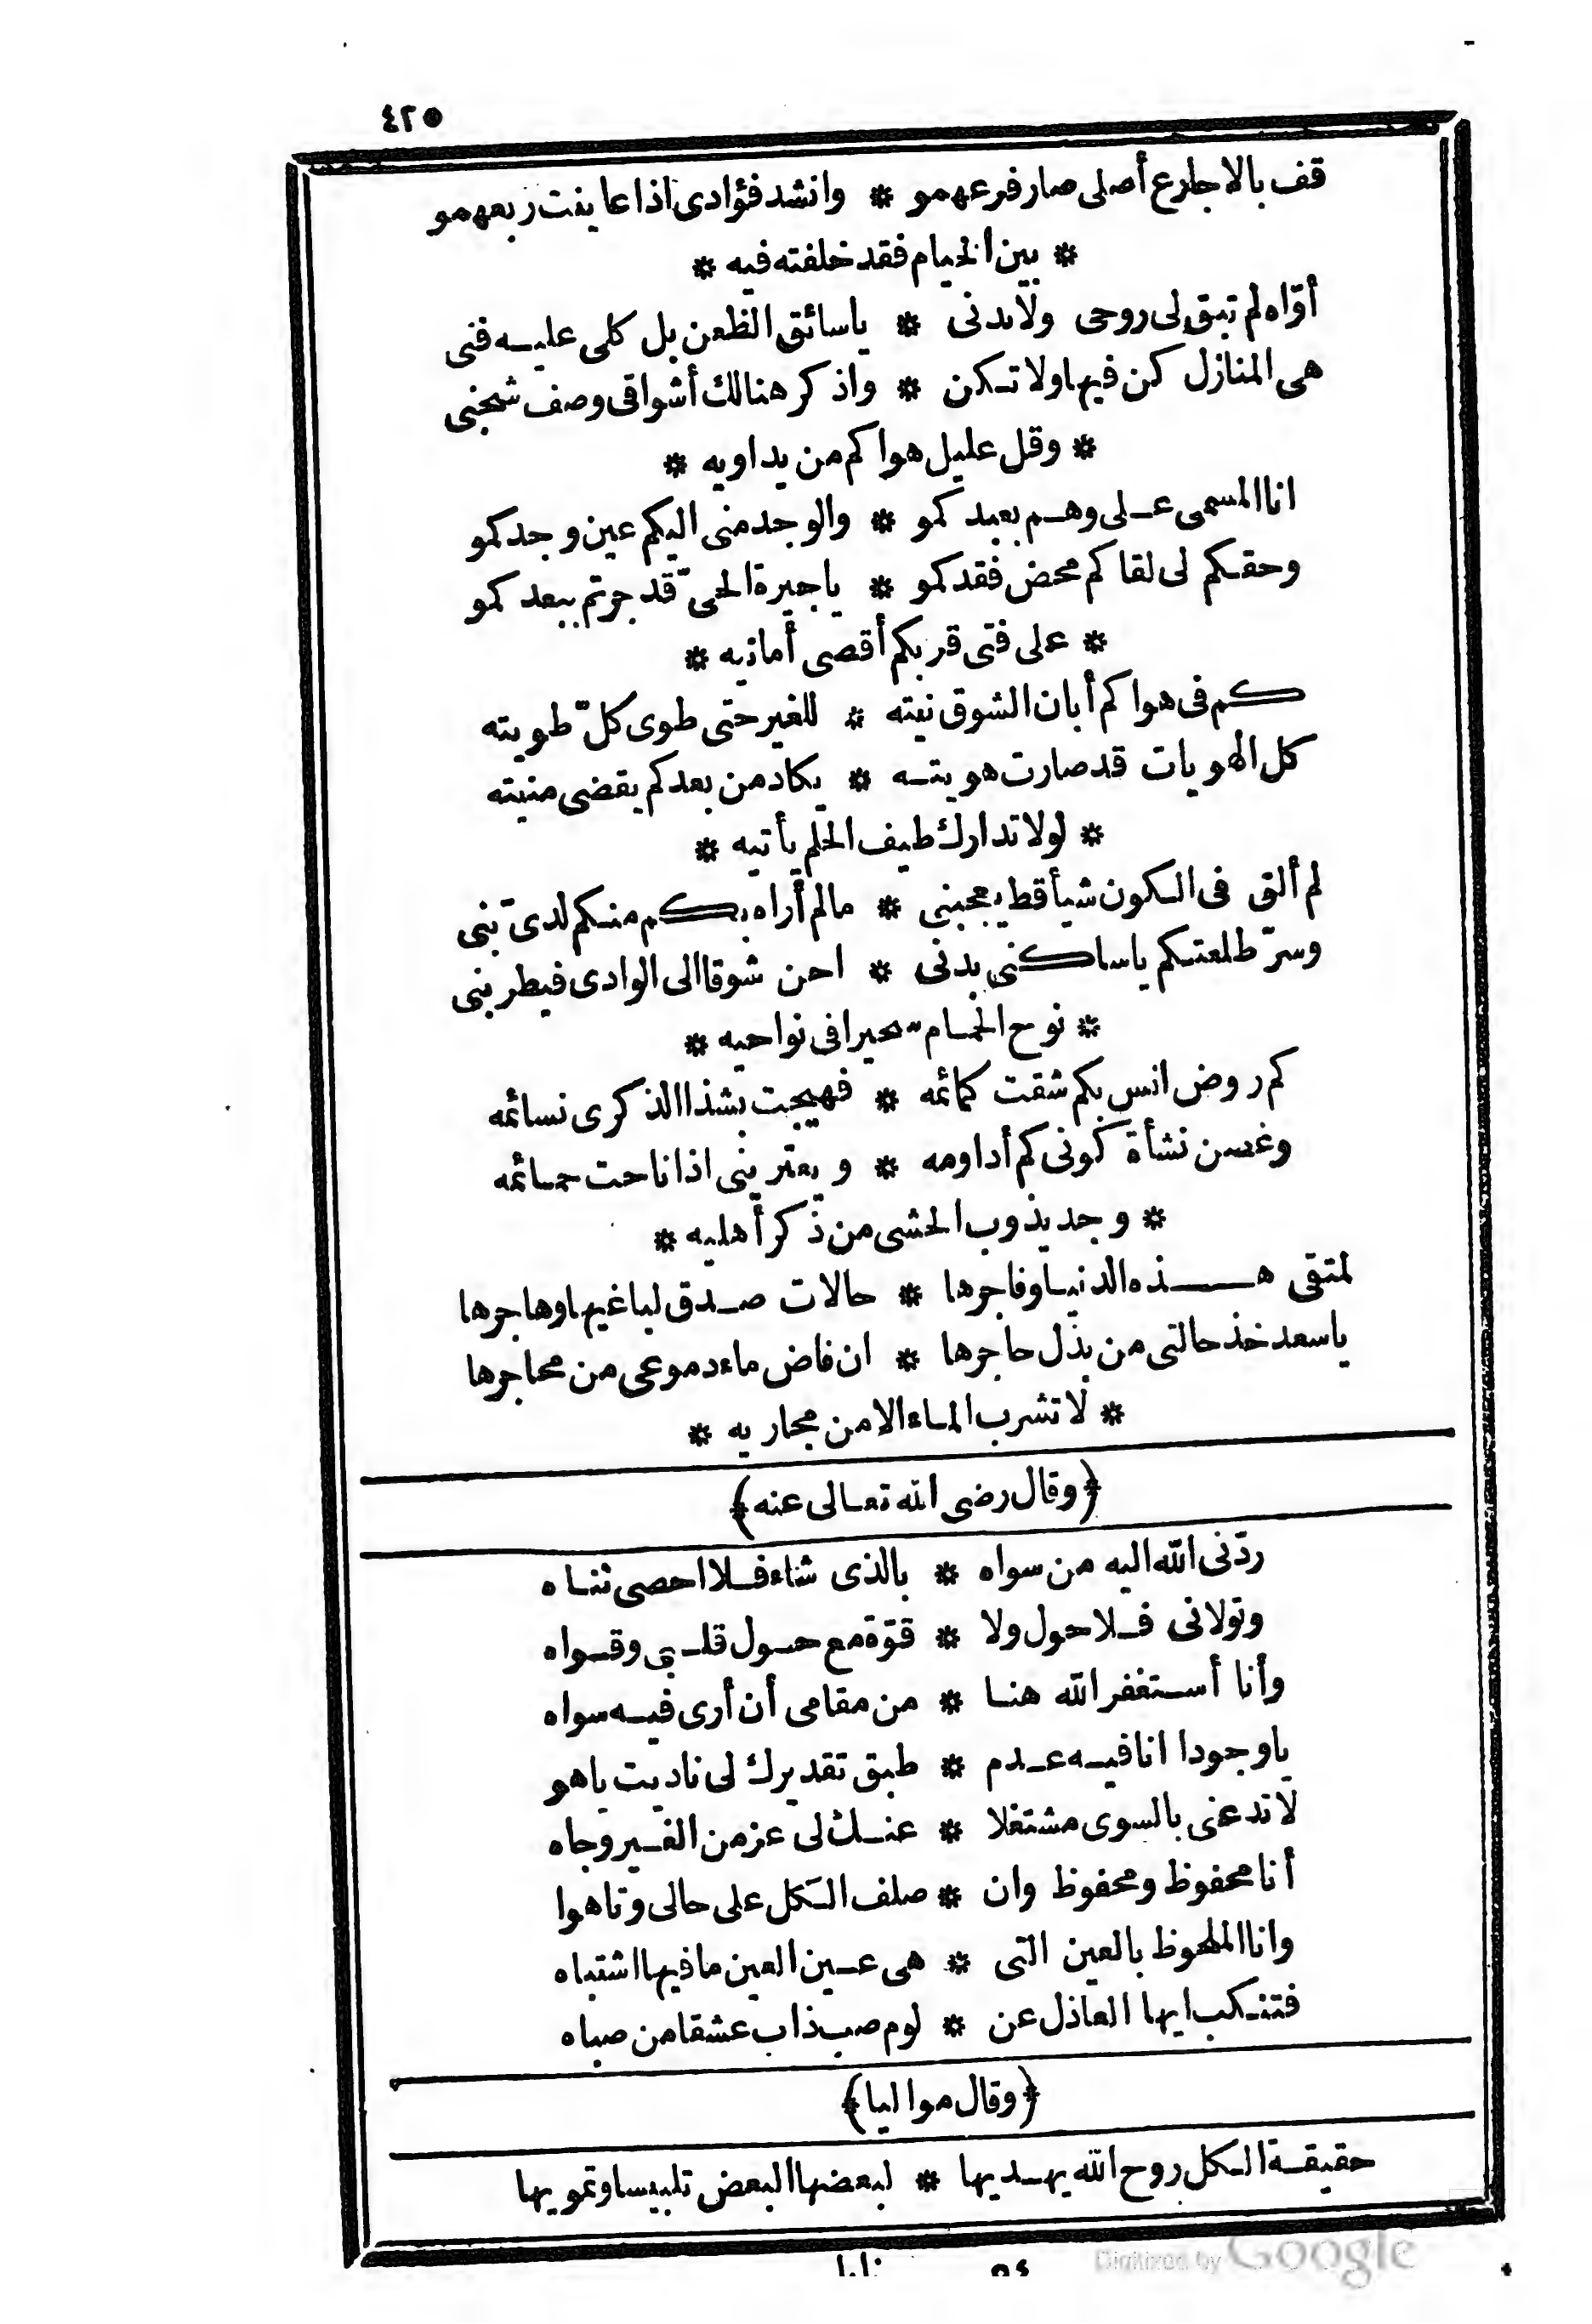 ٤٢٥
قف بالاجارع أصلى صار فرعهمو * وانشد فؤادى اذا عاينت ربعهمو
* بين الخيام فقد خلفته فيه *
أوّاه لم تبق لى روحى ولا بدنى * ياسائق الظعن بل كلى عليه فنى
هى المنازل كن فيها ولا تكن * واذكر هنالك أشواقى وصف شجنى
* وقل عليل هواكم من يداويه *
انا المسمى على وهم بعبدكمو * والوجد منى اليكم عين وجدكمو
وحقكم لى لقاكم محض فقدكمو * ياجيرة الحىّ قد جرتم ببعدكمو
* على فتى قربكم أقصى أمانيه *
كم فى هواكم أبان الشوق نيته * للغير حتى طوى كلّ طويته
كل الهويات قد صارت هويته * يكاد من بعدكم يقضى منيته
* لولا تدارك طيف الحلم يأتيه *
لم ألق فى الكون شيأ قط يعجبنى * مالم أراه بكم منكم لدىّ بنى
وسرّ طلعتكم ياساكنى بدنى * احن شوقا الى الوادى فيطربنى
* نوح الحمام سحيرا فى نواحيه *
كم روض انس بكم شقت كمائمه * فهيجت بشذا الذكرى نسائمه
وغصن نشأة كونى كم أداومه * ويعترينى اذا ناحت حمائمه
* وجد يذوب الحشى من ذكر أهليه *
لمتقى هذه الدنيا وفاجرها * حالات صدق لباغيها وهاجرها
ياسعد خذ حالتى من بذل حاجرها * ان فاض ماء دموعى من محاجرها
* لا تشرب الماء الا من مجاريه *
﴿وقال رضى الله تعالى عنه﴾
ردّنى الله اليه من سواه * بالذى شاء فلا احصى ثناه
وتولانى فلا حول ولا * قوّة مع حول قلبى وقواه
وأنا أستغفر الله هنا * من مقامى أن أرى فيه سواه
ياوجودا انا فيه عدم * طبق تقديرك لى ناديت ياهو
لا تدعنى بالسوى مشتغلا * عنك لى عز من الغير وجاه
أنا محفوظ ومحفوظ وان * صلف الكل على حالى وتاهوا
وانا الملحوظ بالعين التى * هى عين العين ما فيها اشتباه
فتنكب ايها العاذل عن * لوم صب ذاب عشقا من صباه
﴿وقال مواليا﴾
حقيقة الكل روح الله يهديها * لبعضها البعض تلبيسا وتمويها
٥٤
Digitized by Google